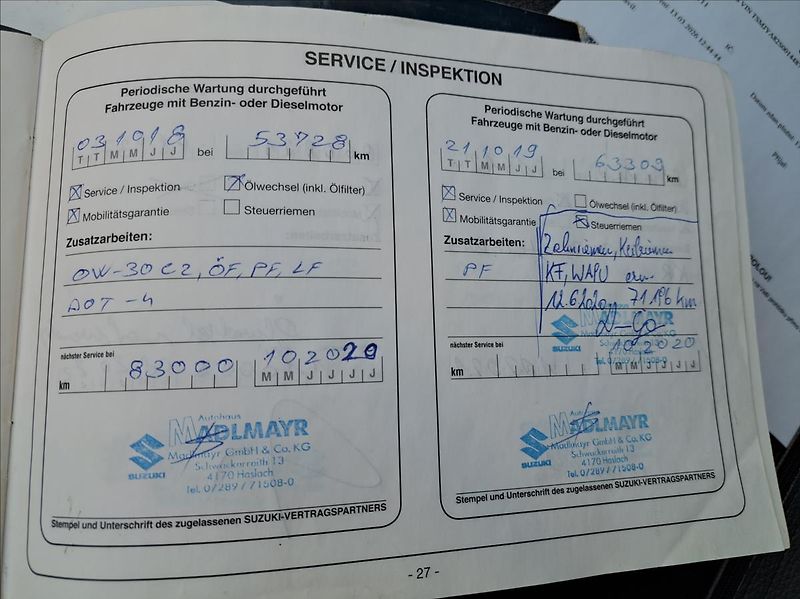 SERVICE / INSPEKTION
Periodische Wartung durchgeführt
Fahrzeuge mit Benzin- oder Dieselmotor
03 10 18 bei 53728 km
T T M M J J
Service / Inspektion Ölwechsel (inkl. Ölfilter)
Mobilitätsgarantie Steuerriemen
Zusatzarbeiten:
OW-30 C2, ÖF, PF, LF
DOT-4
nächster Service bei
km 83000 10 2020
M M J J J J
Autohaus
MADLMAYR
Madlmayr GmbH & Co. KG
Schwackerreith 13
4170 Haslach
Tel. 07289/71508-0
SUZUKI
Stempel und Unterschrift des zugelassenen SUZUKI-VERTRAGSPARTNERS
Periodische Wartung durchgeführt
Fahrzeuge mit Benzin- oder Dieselmotor
21 10 19 bei 63309 km
T T M M J J
Service / Inspektion Ölwechsel (inkl. Ölfilter)
Mobilitätsgarantie Steuerriemen
Zusatzarbeiten:
Zahnriemen, Keilriemen
PF KF, WAPU ern.
12.6.2020 71196 km
MADLMAYR
SUZUKI
Tel. 07289/71508-0
nächster Service bei
km 10 2020
M M J J J J
MADLMAYR
Madlmayr GmbH & Co. KG
Schwackerreith 13
4170 Haslach
Tel. 07289/71508-0
SUZUKI
Stempel und Unterschrift des zugelassenen SUZUKI-VERTRAGSPARTNERS
- 27 -